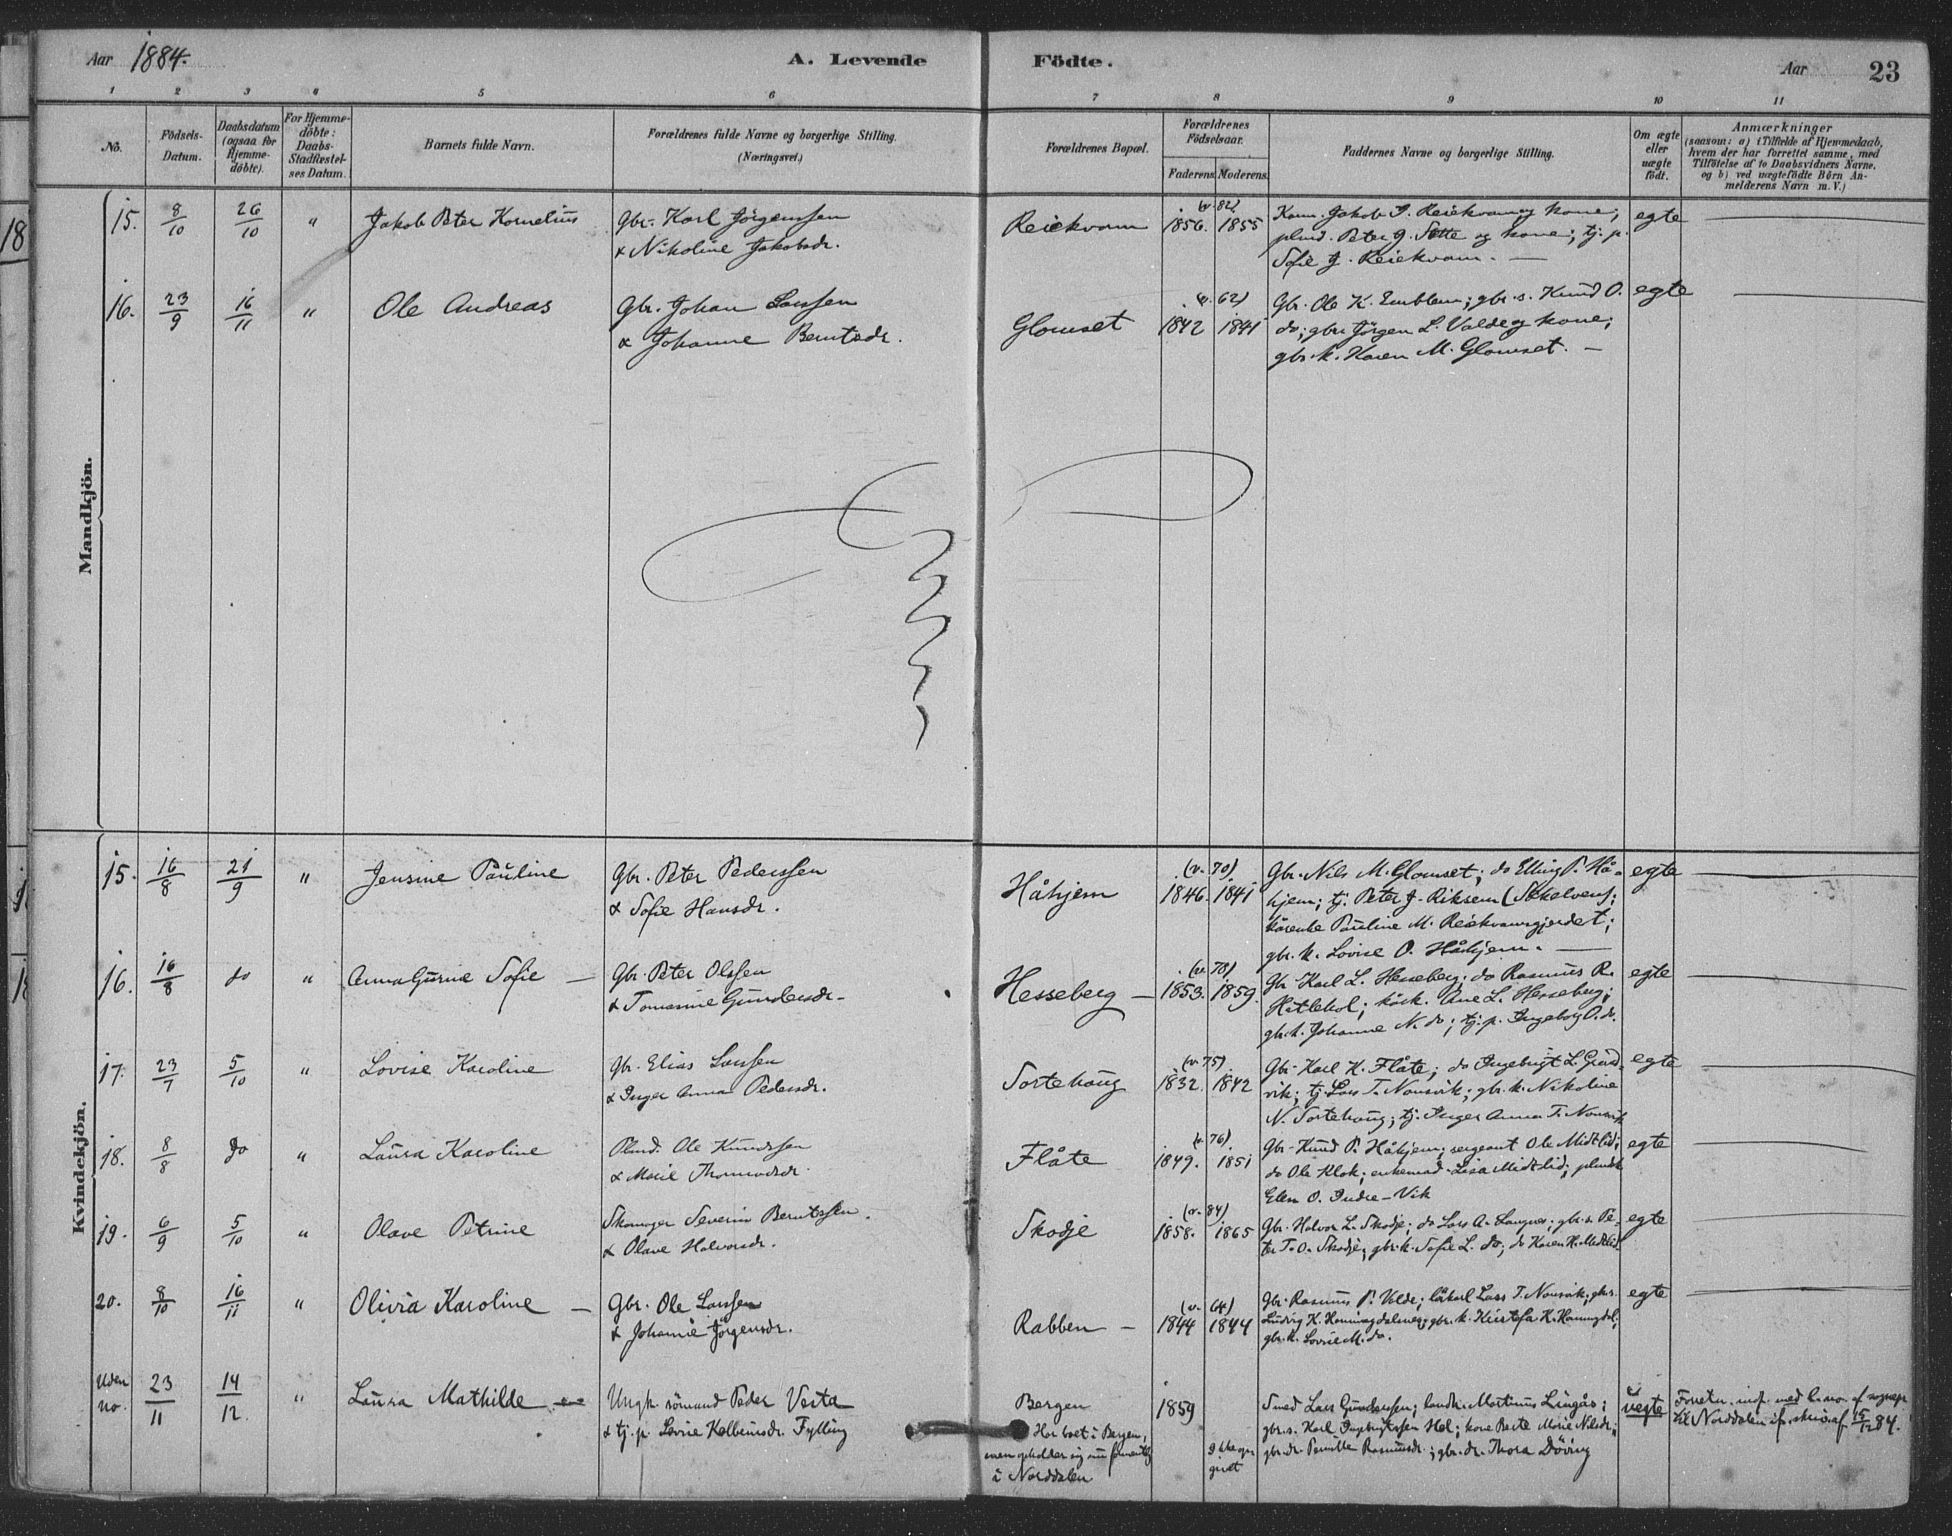 Aar 1884. A. Levende Födte. Aar 23
1 2 3 4 5 6 7 8 9 10 11
No. Födsels-Datum. Daabsdatum (ogsaa for Hjemme-döbte). For Hjemme-döbte: Daabs-Stadfæstel-ses Datum. Barnets fulde Navn. Forældrenes fulde Navne og borgerlige Stilling. (Næringsvei.) Forældrenes Bopæl. Forældrenes Födselsaar. Faderens. Moderens. Faddernes Navne og borgerlige Stilling. Om ægte eller uægte födt. Anmærkninger (saasom: a) i Tilfælde af Hjemmedaab, hvem der har forrettet samme, med Tilföielse af to Daabsvidners Navne, og b) ved uægtefödte Börn An-melderens Navn m. V.)
Mandkjön.
15. 8/10 26/10 " Jakob Peter Kornelius Gbr. Karl Jörgenssen Reiekvam (v. 82) 1856. 1855 Jakob J. Reiekvam og kone; egte
& Nikoline Jakobsdr. plmd. Peter J. Sætte og kone; tj. p.
Sofie J. Reiekvam. —
16. 23/9 16/11 " Ole Andreas Gbr. Johan Larssen Glomset (v. 62) 1842 1841 Gbr. Ole K. Emblem; gbr. s. Knud O. egte
& Johanne Berntsdr. do; gbr. Jörgen L. Valde og kone;
gbr. k. Karen M. Glomset. —
Kvindekjön.
15. 16/8 21/9 " Jensine Pauline Gbr. Peter Pederssen Håhjem (v. 70) 1846. 1841 Gbr. Nils M. Glomset; do Elling P. Hå- egte
& Sofie Hansdr. hjem; tj. Peter J. Riksem
Pauline M. Reiekvamgjerdet;
gbr. k. Lovise O. Håhjem. —
16. 16/8 do " Anna Gurine Sofie — Gbr. Peter Olssen Hesseberg — (v. 78) 1853. 1859. Gbr. Karl L. Hesseberg; do Rasmus R. egte
& Tomasine Gundersdr. Hatlehol; Ane L. Hesseberg;
gbr. k. Johanne N. do; tj. p. Ingeborg O. do.
17. 23/7 5/10 " Lovise Karoline Gbr. Elias Larssen Sortehoug (v. 75) 1832. 1842 Gbr. Karl K. Flåte; do Ingebrigt L. egte
& Inger Anna Pedersdr. vik; tj. Lars T. Nonsvik; gbr. k. Nikoline
N. Sortehoug; tj. Inger Anna T. Nonsvik
18. 8/8 do " Laura Karoline Plmd. Ole Knudssen Flåte (v. 76) 1849. 1851 Gbr. Knud P. Håhjem; sergeant Ole Midtlid; egte
& Marie do Ole Klok; enkemad. Lisa Midtlid;
Elen O. Indre-Vik
19. 6/9 5/10 " Olave Petrine Skomager Severin Berntssen. Skodje (v. 84) 1858. 1865 Gbr. Halvor L. Skodje; do Lars A. Langnes; gbr. s. Pe- egte
& Olave Halvorsdr. ter T. O. Skodje; gbr. k. Sofie L. do; do Karen H. Midtlid
20. 8/10 16/11 " Olivia Karoline — Gbr. Ole Larssen Rabben — (v. 64) 1844 1844 Gbr. Rasmus P. Valde; Lars T. Nonsvik; gbr. s. egte
& Johanne Jörgensdr. Ludvig K.
gbr. k. Lovise M. do.
Uden no. 23/11 14/12 " Laura Mathilde Ungk. sömand Peder Vesta Bergen 1859 Smed Lars Gunderssen; landh. Martinus Lingås; uegte
& tj. p. Lovise Kolbeinsdr. Fylling Har boet i Bergen, gbr. s. Karl Hol; kone Berte Marie Nilsdr.;
men opholder sig nu Ikke opgivet gbr. dr. Pernille Rasmusdr.; gbr. dr. Thora Döving
i Norddalen til Norddalen 15/12 84.